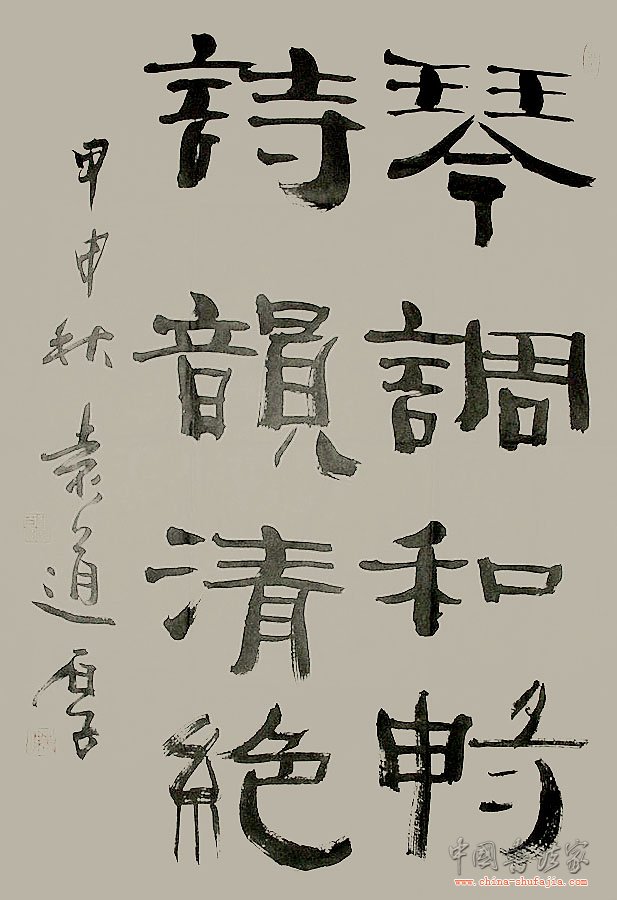 琴調和暢
詩韻清絕
甲申秋袁道厚
中國書法家
www.china-shufajia.com